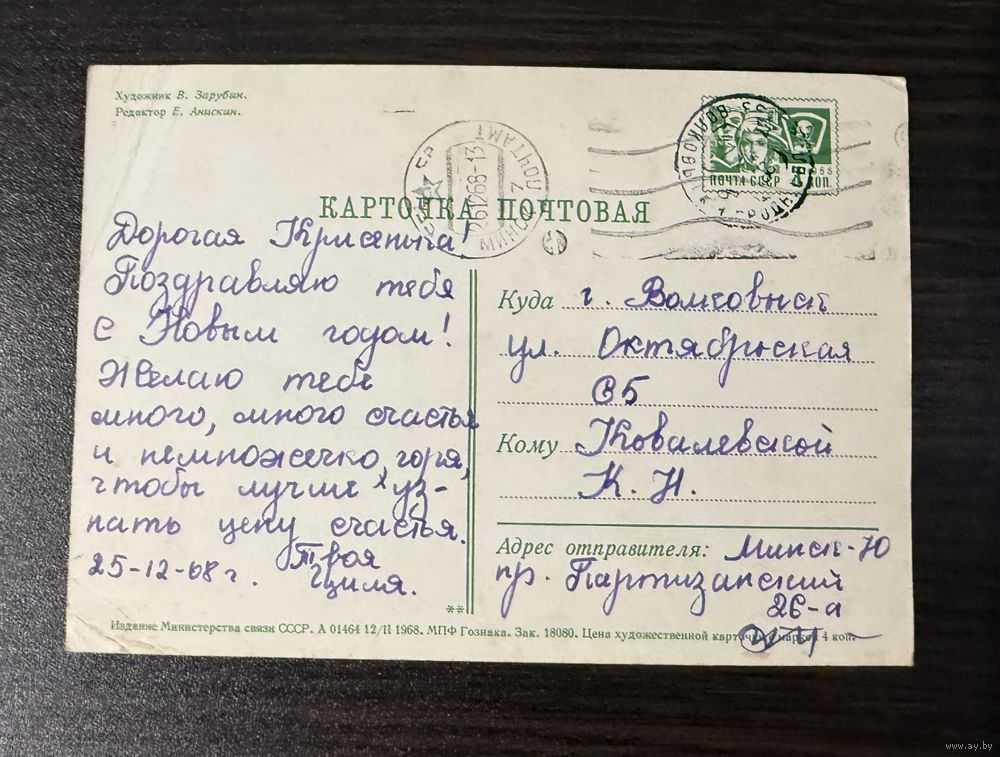 Художник В. Зарубин.
Редактор Е. Анискин.
ПОЧТА СССР
КОП.
МИНСК
ПОЧТАМТ
261268-13
КАРТОЧКА ПОЧТОВАЯ
Дорогая
Поздравляю тебя
с Новым годом!
Желаю тебе
много, много счастья
и немножечко горя,
чтобы лучше уз-
нать цену счастья.
Твоя
25-12-68г. Циля.
Куда г. Волковыск
ул. Октябрьская
Кому Ковалевской
К. Н.
Адрес отправителя: Минск-
пр. Партизанский
26-а
**
Издание Министерства связи СССР. А 01464 12/II 1968. МПФ Гознака. Зак. 18080. Цена художественной карточки с маркой 4 коп.
www.ay.by